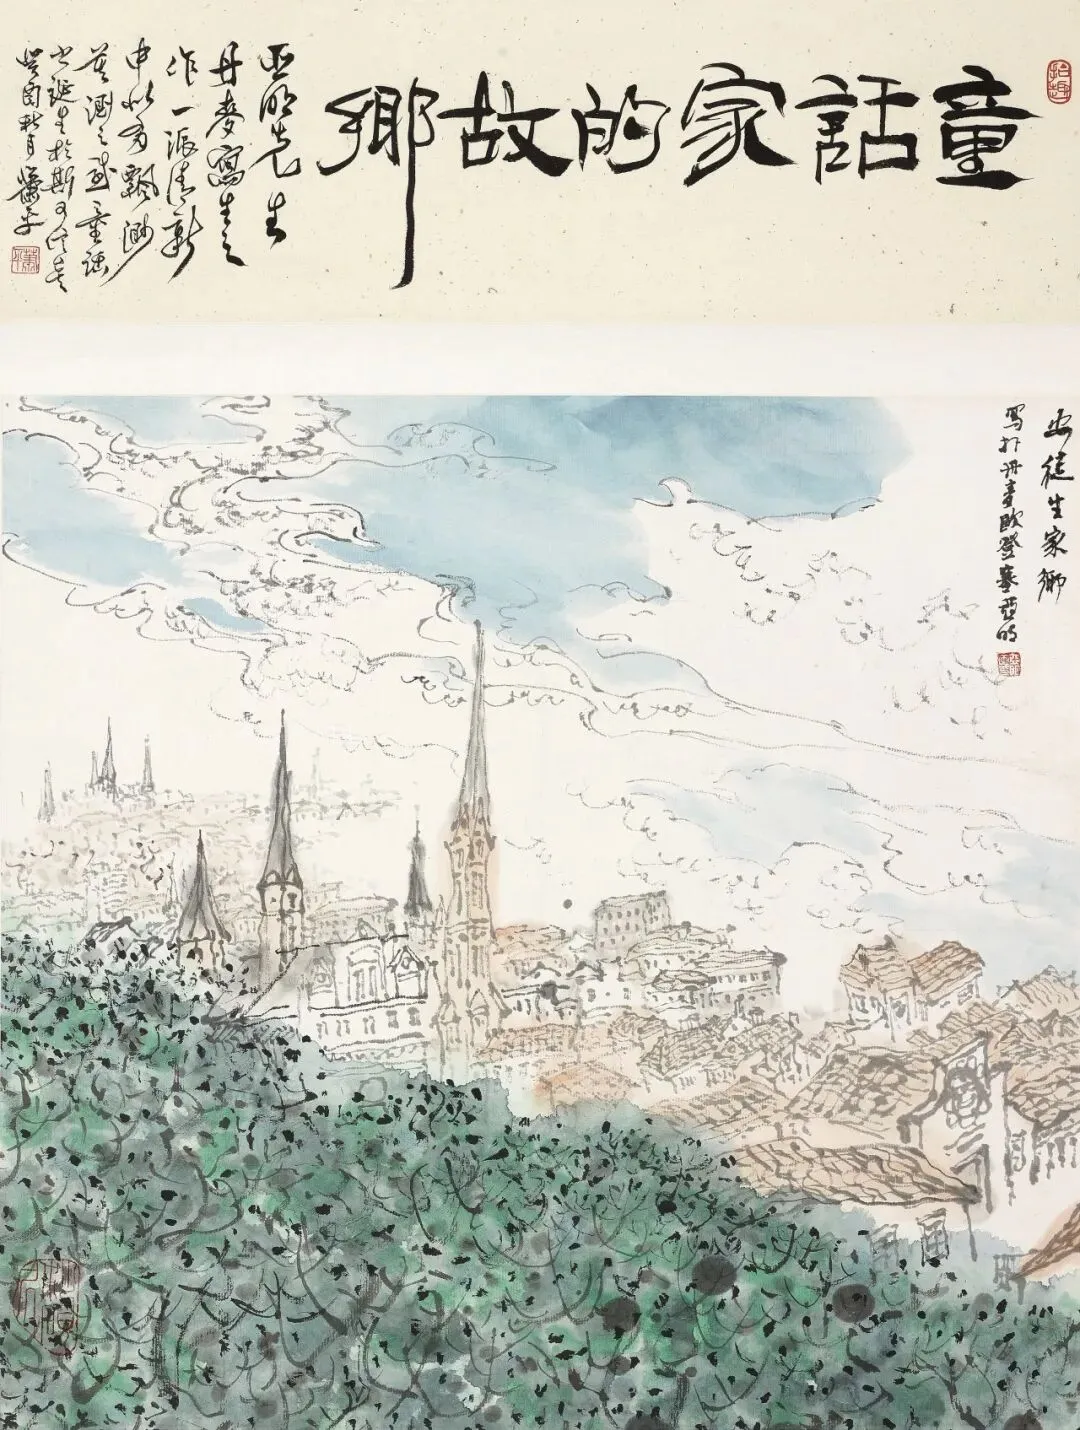 童話家的故鄉
亚明先生
丹麥寫生之
作一派清新
中似有飄渺
莫測之感童話
之誕生於斯可信矣
癸酉秋月蕭平
安徒生家鄉
寫於丹麥欧登塞亞明